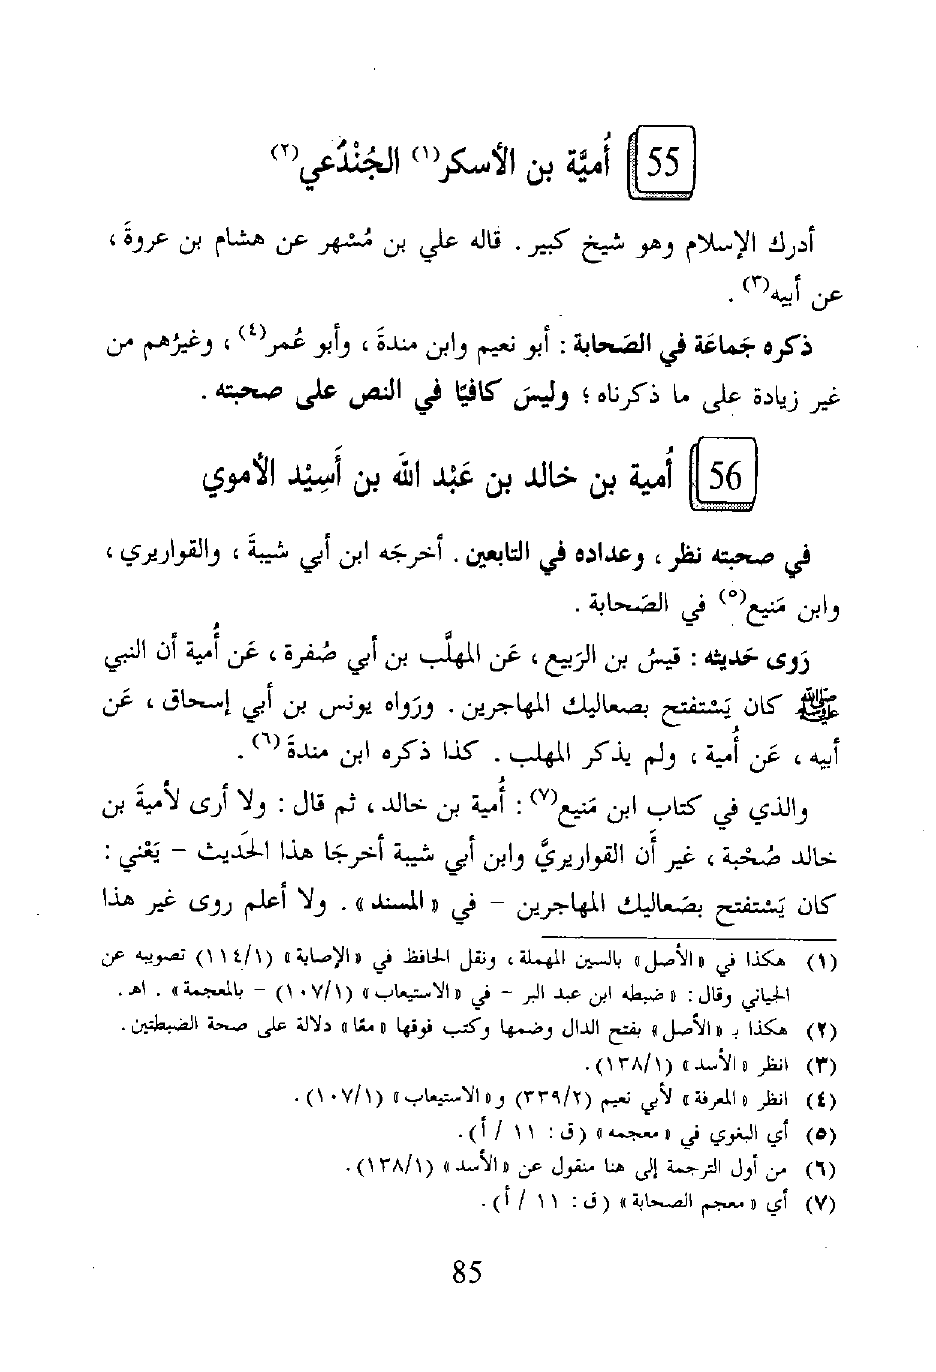 55 أُميَّة بن الأسكر(١) الجُنْدُعي(٢)
أدرك الإسلام وهو شيخ كبير . قاله علي بن مُسْهر عن هشام بن عروةَ ،
عن أبيه(٣) .
ذكره جَماعَة في الصَحابة : أبو نعيم وابن مندةَ ، وأبو عُمر(٤) ، وغيرُهم من
غير زيادة على ما ذكرناه ؛ وليسَ كافيًا في النص على صحبته .
56 أُمية بن خالد بن عَبْد الله بن أَسِيْد الأموي
في صحبته نظر ، وعداده في التابعين . أخرجَه ابن أبي شيبةَ ، والقواريري ،
وابن مَنيع(٥) في الصَحابة .
رَوى حَديثه : قيسُ بن الرَبيع ، عَن المهلَّب بن أبي صُفرة ، عَن أُمية أن النبي
ﷺ كان يَسْتفتح بصعاليك المهاجرين . ورَواه يونس بن أبي إسحاق ، عَن
أبيه ، عَن أُمية ، ولم يذكر المهلب . كذا ذكره ابن مندةَ(٦) .
والذي في كتاب ابن مَنيع(٧) : أُمية بن خالد ، ثم قال : ولا أرى لأميةَ بن
خالد صُحْبة ، غير أَن القواريريَّ وابن أبي شيبة أخرجَا هذا الحَديث - يَعْني :
كان يَسْتفتح بصَعاليك المهاجرين - في « المسند » . ولا أعلم روى غير هذا
(١) هكذا في « الأصل » بالسين المهملة ، ونقل الحافظ في « الإصابة » (١/١١٤) تصويبه عن
الجياني وقال : « ضبطه ابن عبد البر - في « الاستيعاب » (١/١٠٧) - بالمعجمة » . اهـ .
(٢) هكذا بـ « الأصل » بفتح الدال وضمها وكتب فوقها « معًا » دلالة على صحة الضبطين .
(٣) انظر « الأسد » (١/١٣٨) .
(٤) انظر « المعرفة » لأبي نعيم (٢/٣٣٩) و « الاستيعاب » (١/١٠٧) .
(٥) أي البغوي في « معجمه » (ق : ١١ / أ) .
(٦) من أول الترجمة إلى هنا منقول عن « الأسد » (١/١٣٨) .
(٧) أي « معجم الصحابة » (ق : ١١ / أ) .
85